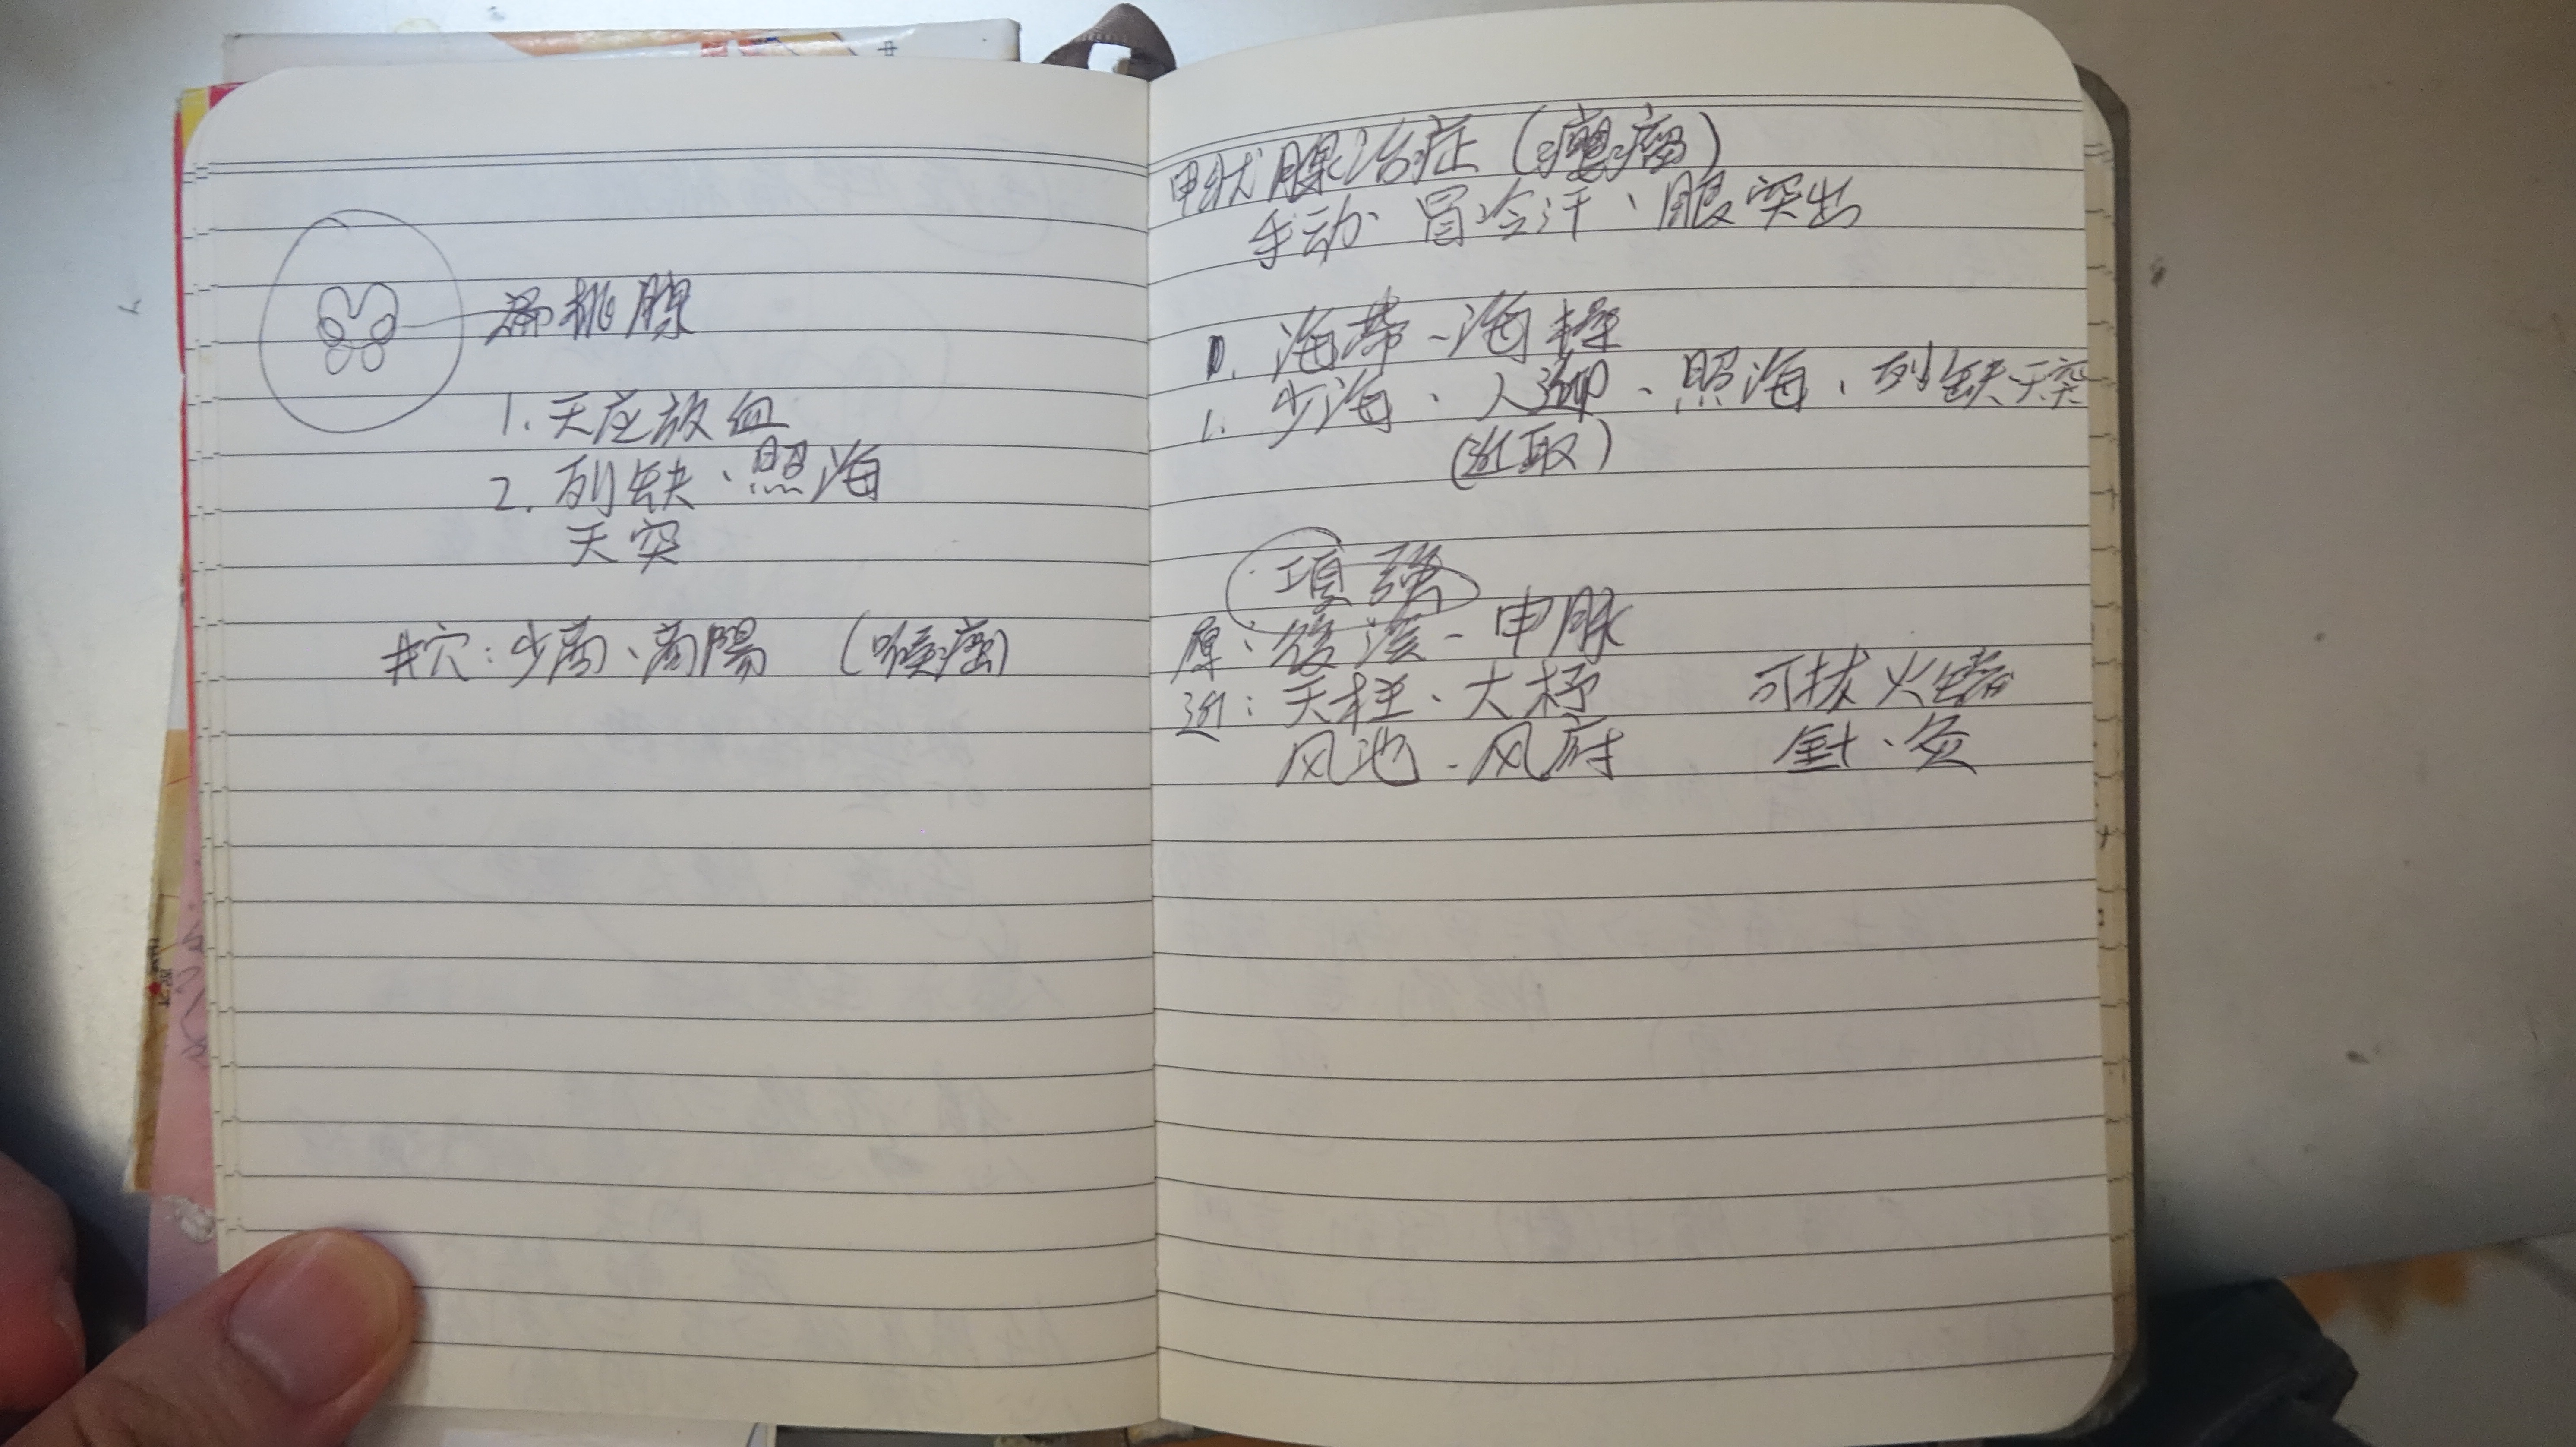 扁桃腺
1. 天应放血
2. 列缺、照海
天突
井穴：少商、商陽 （喉痛）
甲状腺治症（癭瘤）
手动、冒冷汗、眼突出
海帶、海藻
1. 少海、人迎、照海、列缺天突
（近取）
項强
原：後溪、申脉
近：天柱、大杼 可拔火罐
风池、风府 針、灸